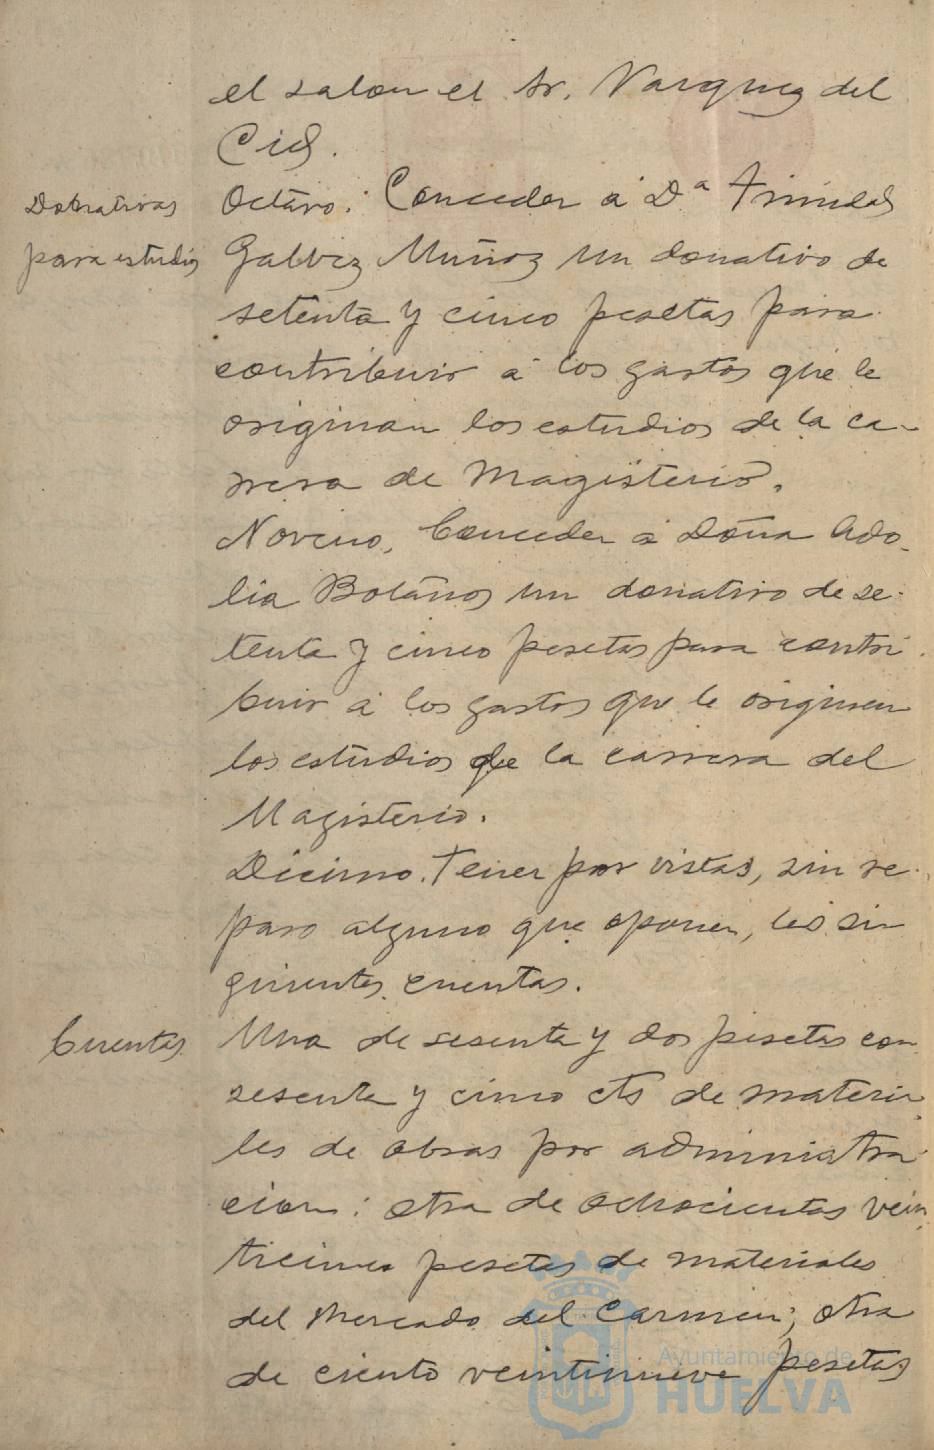 el salon el Sr. Vazquez del
Cid.
Donativos
para estudios
Octavo: Conceder á Dª Trinidad
Galvez Muñoz un donativo de
setenta y cinco pesetas para
contribuir á los gastos que le
originan los estudios de la ca-
rrera de Magisterio.
Noveno. Conceder á Doña Ado-
lia Bolaños un donativo de se-
tenta y cinco pesetas para contri
buir á los gastos que le originen
los estudios de la carrera del
Magisterio.
Décimo. Tener por vistas, sin re-
paro alguno que oponer, las si
guientes cuentas.
Cuentas
Una de sesenta y dos pesetas con
sesenta y cinco cts de materia
les de obras por administra
cion: otra de ochocientas vein
ticinco pesetas de materiales
del Mercado del Carmen; otra
de ciento veintinueve pesetas
Ayuntamiento de
HUELVA